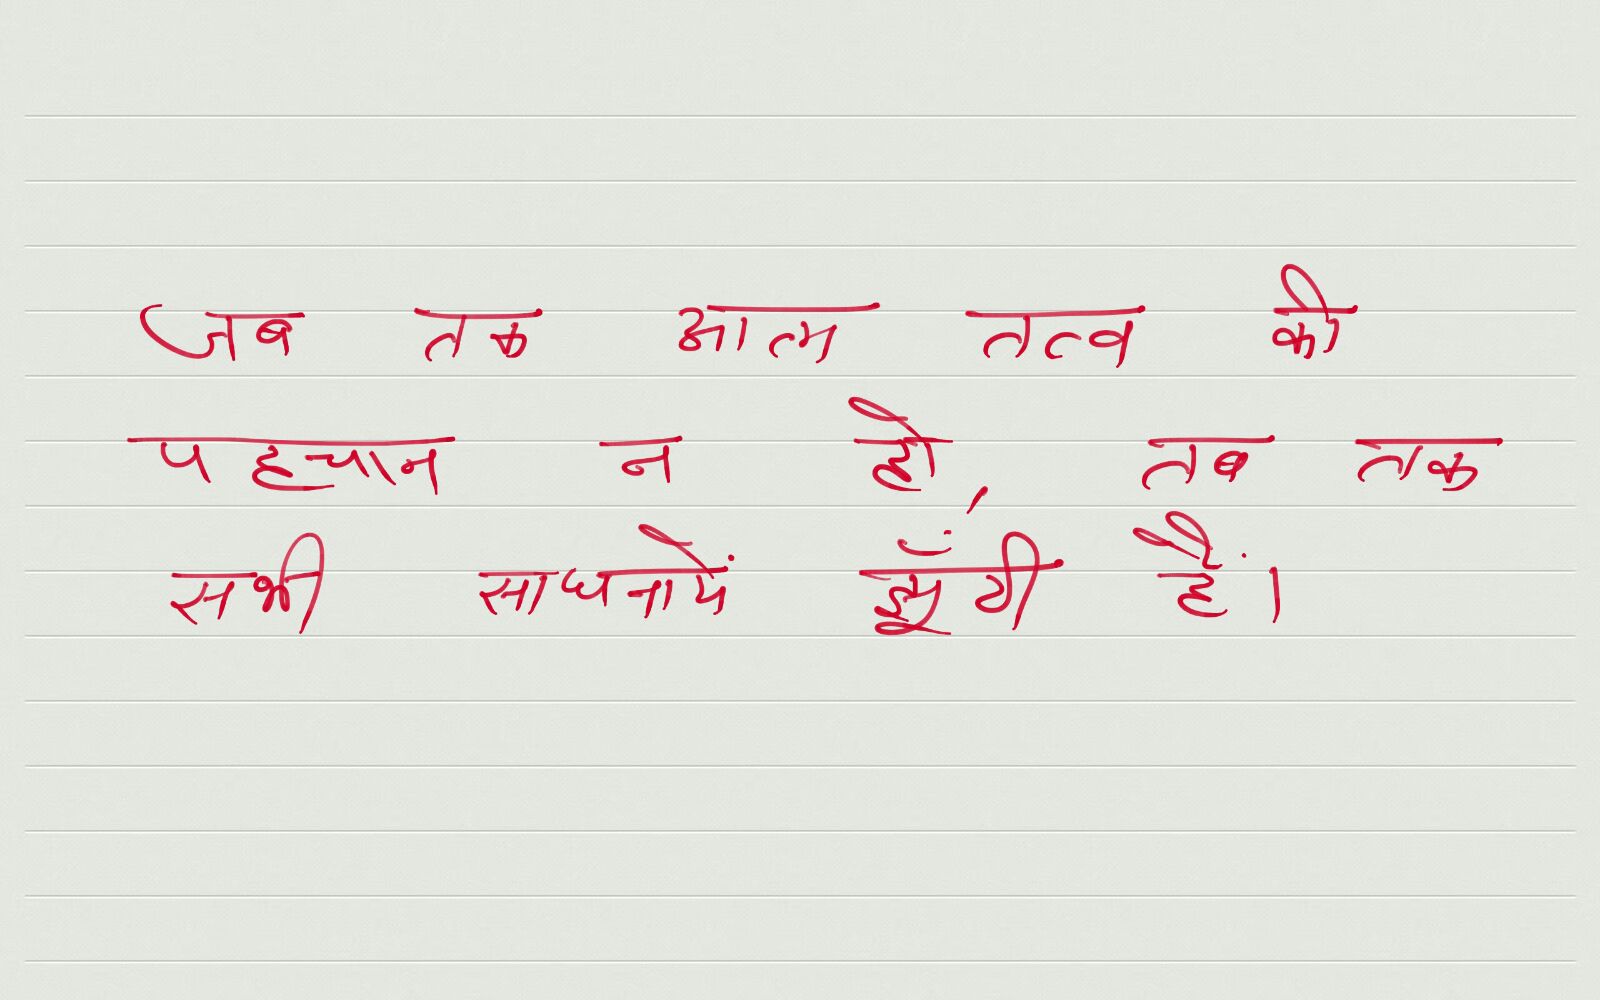 जब तक आत्म तत्व की
पहचान न हो, तब तक
सभी साधनायें झूँठी हैं।